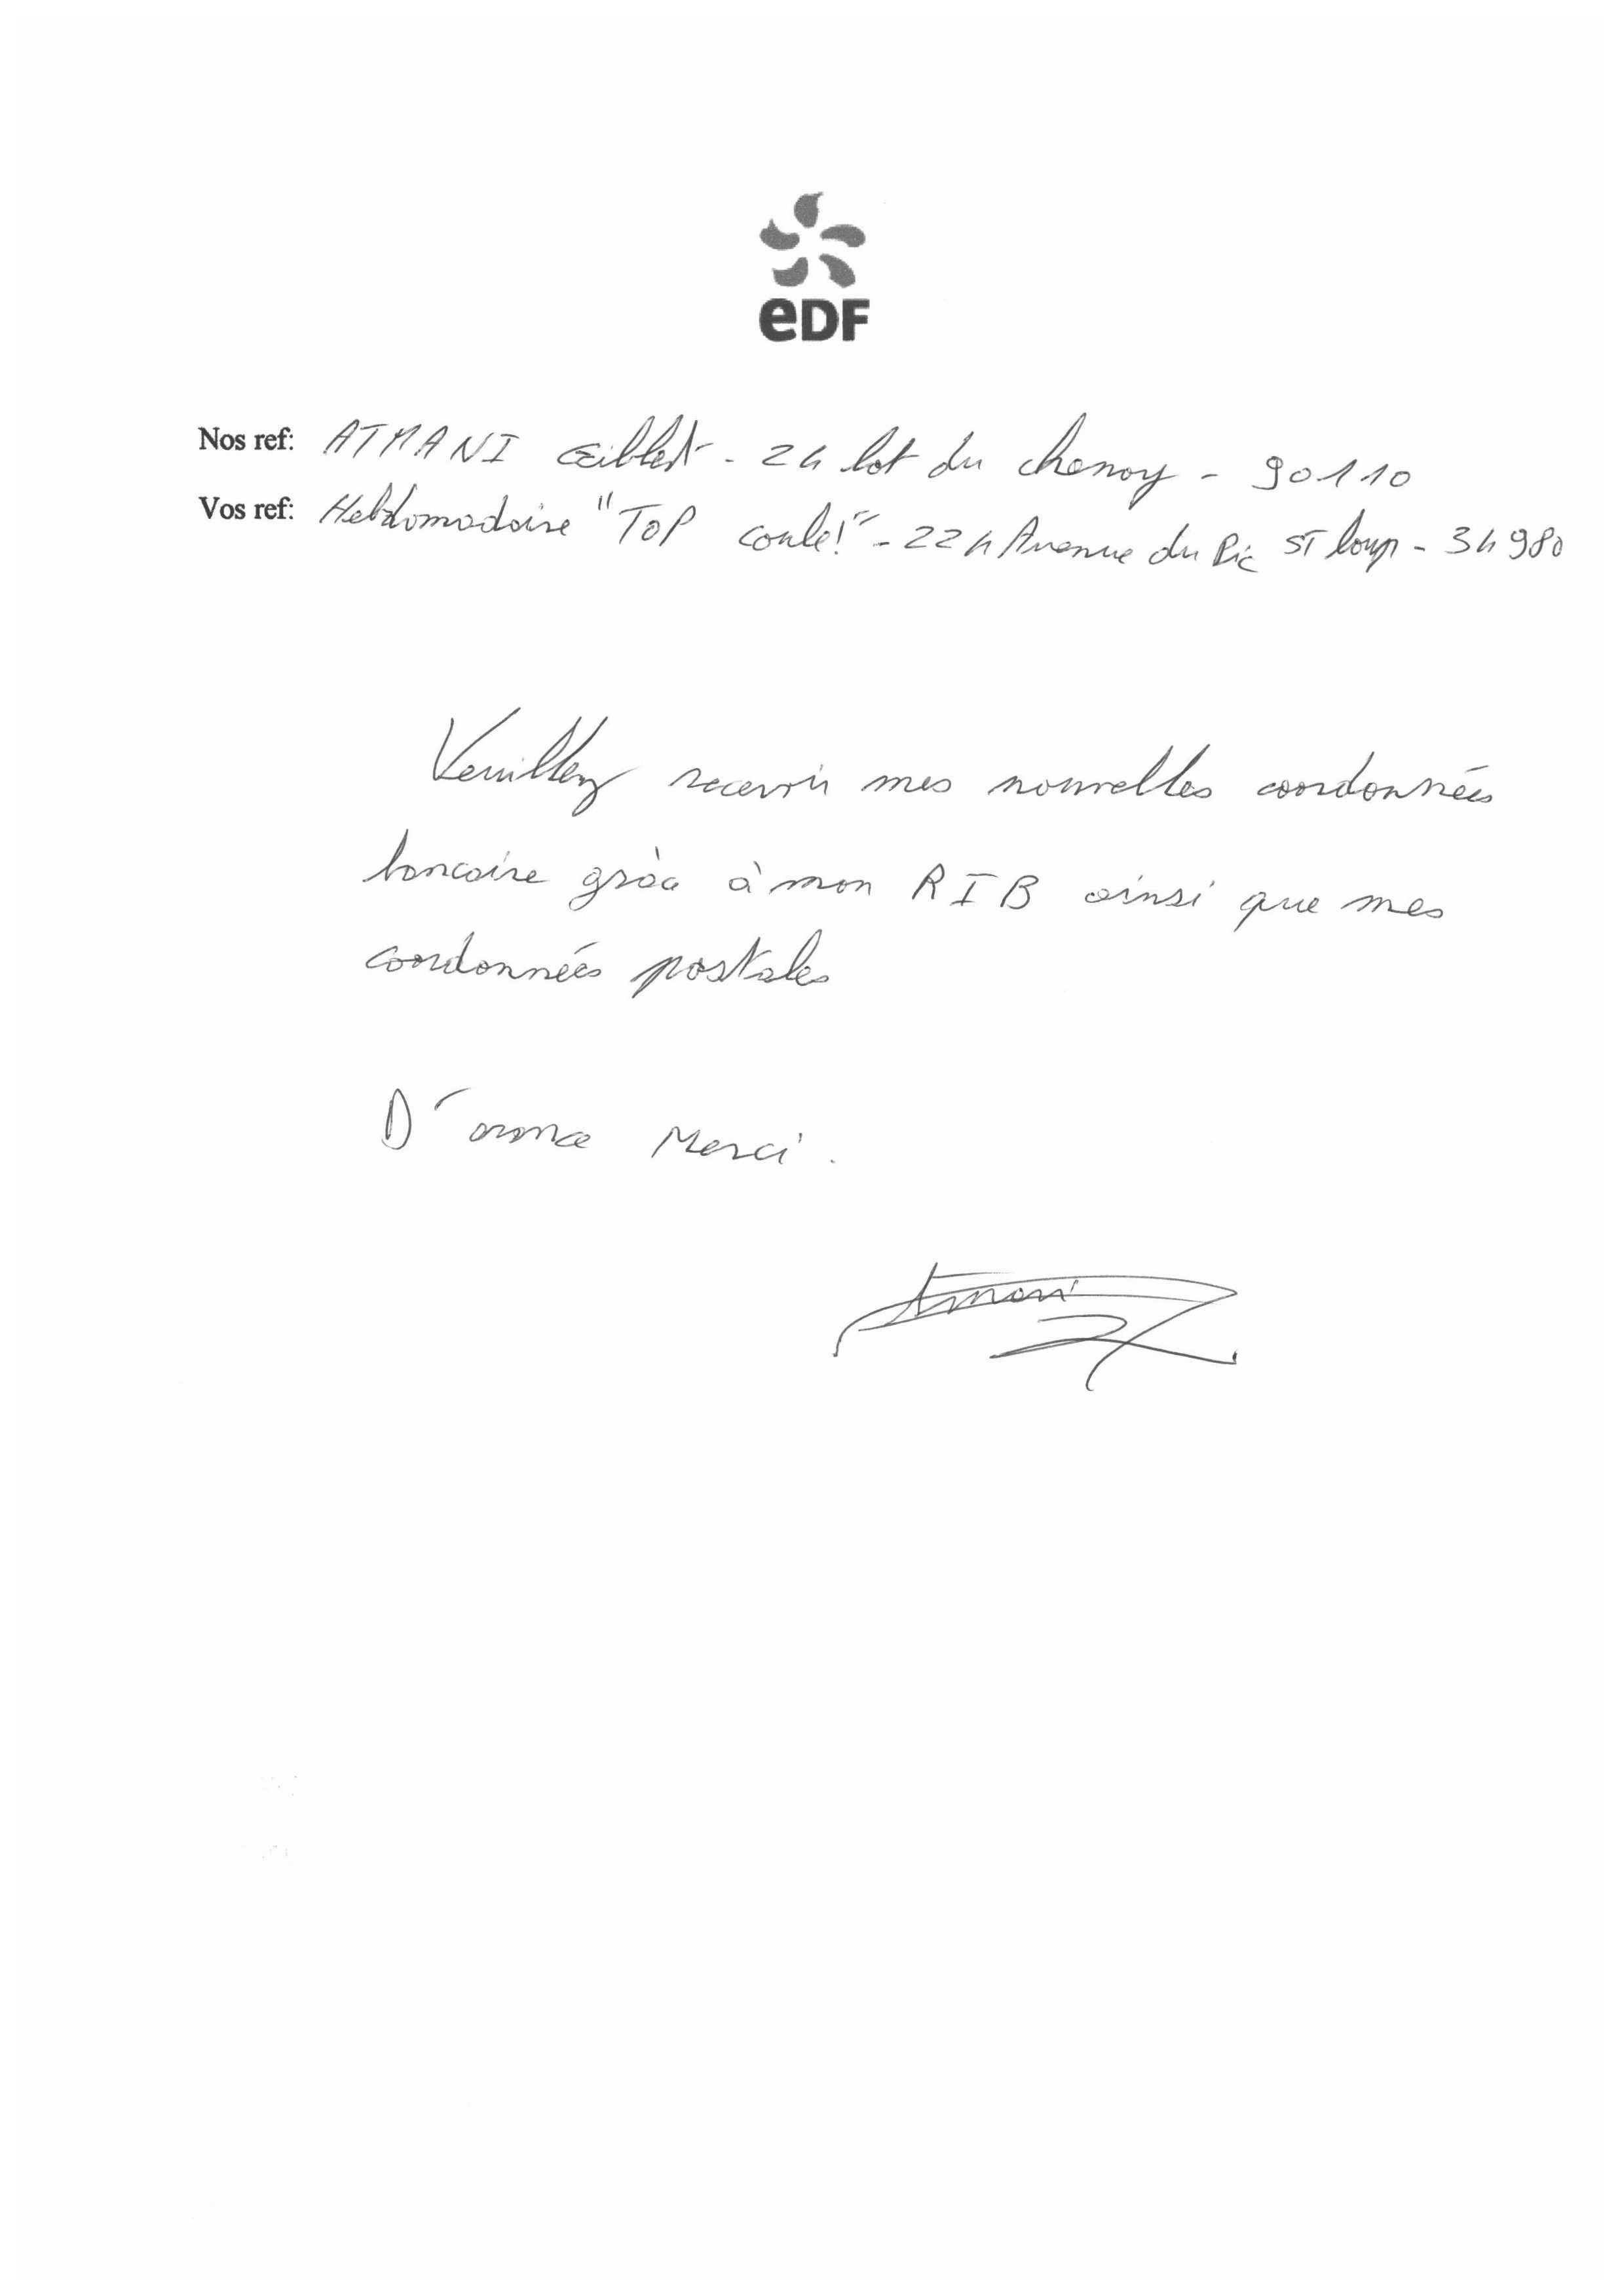 eDF
Nos ref: ATMANI œillet - 24 lot du chenoy - 90110
Vos ref: Hebdomadaire "TOP coule!" - 224 Avenue du Pic ST loup - 34980
Veuillez recevoir mes nouvelles coordonnées
bancaire gràce à mon RIB ainsi que mes
coordonnées postales
D'avance Merci.